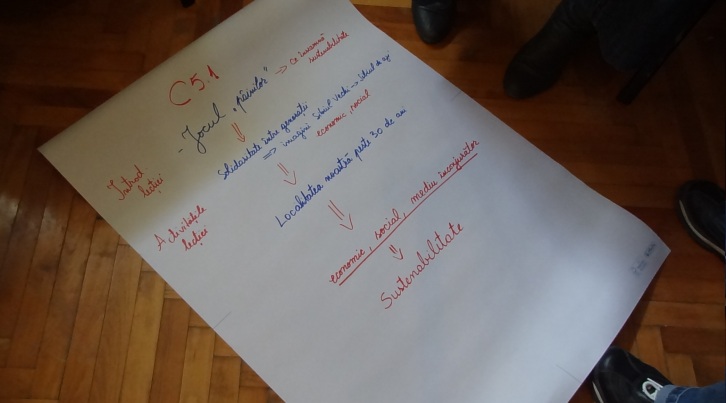 C5.1
- Jocul „pâinilor" => ce înseamnă
sustenabilitate
Introd.
lecției
Solidaritate între generații
=> imagini Sibiul vechi -> Sibiul de azi
economic, social
Activitățile
lecției
Localitatea noastră peste 30 de ani
economic, social, mediu înconjurător
Sustenabilitate